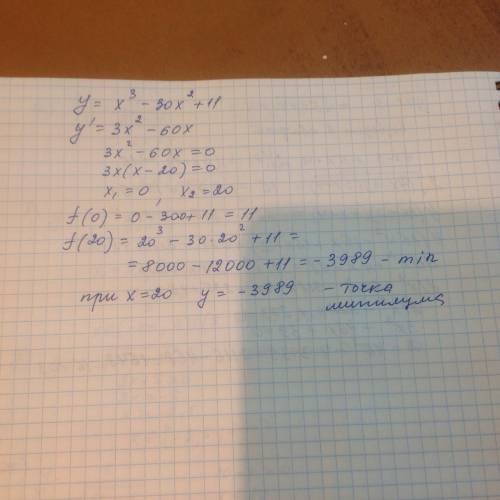 y = x³ - 30x² + 11
y' = 3x² - 60x
3x² - 60x = 0
3x(x - 20) = 0
x₁ = 0, x₂ = 20
f(0) = 0 - 300 + 11 = 11
f(20) = 20³ - 30·20² + 11 =
= 8000 - 12000 + 11 = -3989 - min
при x = 20 y = -3989 - точка
минимума